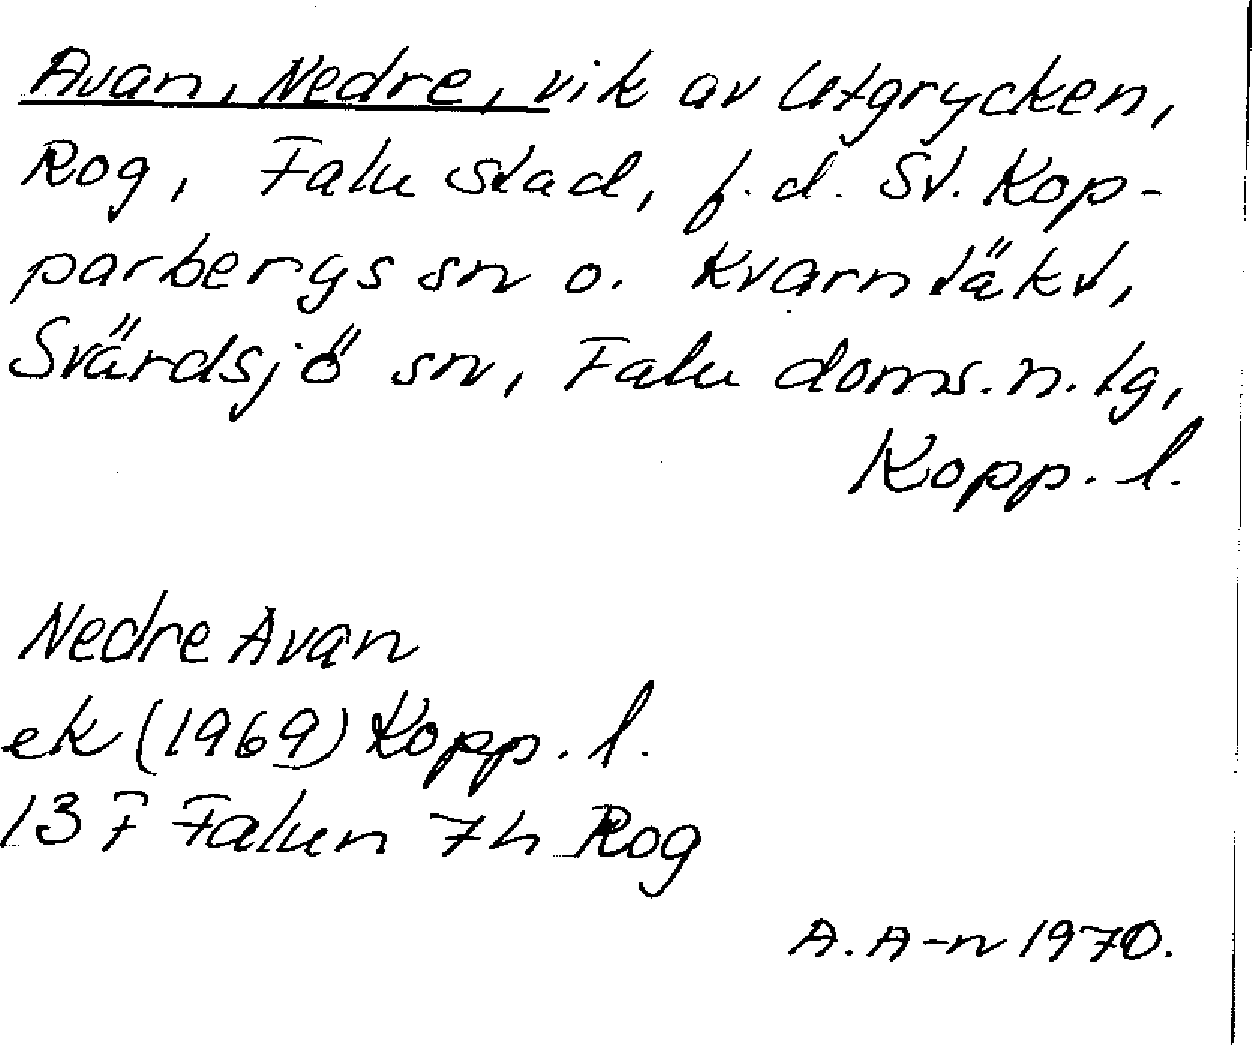 Avan, Nedre, vik av Utgrycken,
Rog, Falu stad, f.d. St. Kop-
parbergs sn o. Kvarntäkt,
Svärdsjö sn, Falu doms.n. tg,
Kopp. l.
Nedre Avan
ek (1969) Kopp. l.
13 F Falun 7h Rog
A. A-n 1970.